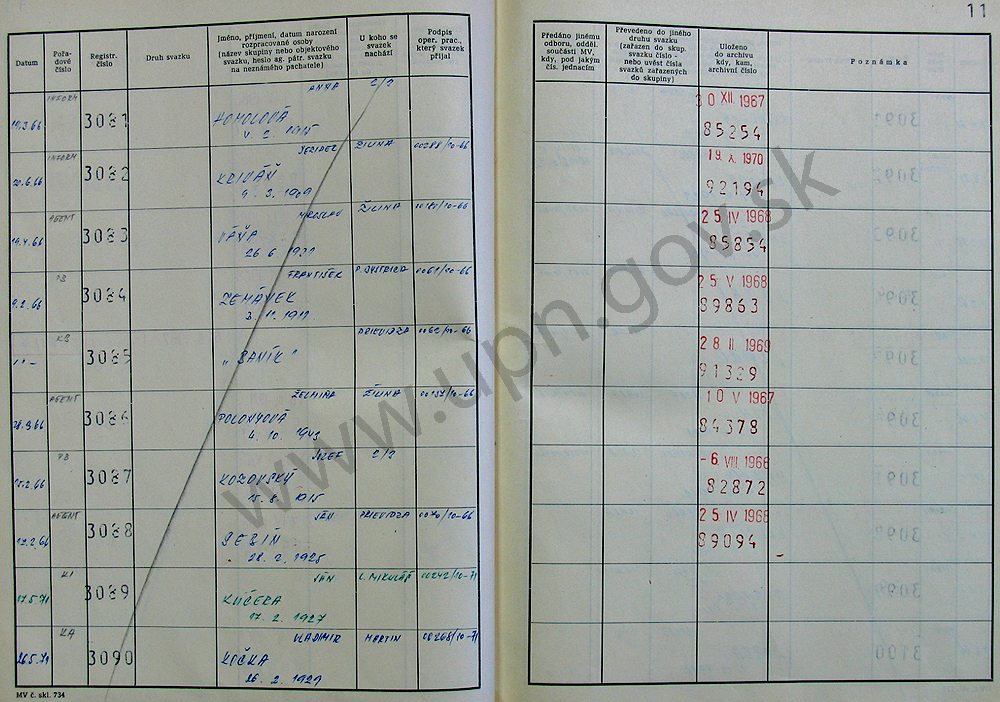 11
Datum
Pořa-
dové
číslo
Registr.
číslo
Druh svazku
Jméno, příjmení, datum narození
rozpracované osoby
(název skupiny nebo objektového
svazku, heslo ag. pátr. svazku
na neznámého pachatele)
U koho se
svazek
nachází
Podpis
oper. prac.,
který svazek
přijal
Předáno jinému
odboru, odděl.
součásti MV,
kdy, pod jakým
čís. jednacím
Převedeno do jiného
druhu svazku
(zařazen do skup.
svazku číslo -
nebo uvést čísla
svazků zařazených
do skupiny)
Uloženo
do archivu
kdy, kam,
archivní číslo
Poznámka
INFORM ANNA
3081 HOMOLOVÁ
30 XII 1967
85254
INFORM ŽILINA 00288/10-66
20.6.66 3082 KRIVÁŇ
19. X. 1970
92194
AGENT MIROSLAV ŽILINA
19.4.66 3083 VÁŇA
25 IV 1968
85854
FRANTIŠEK P. BYSTRICA 0061/10-66
9.2.66 3084 ZEMÁNEK
25 V 1968
89863
KB PRIEVIDZA 0062/10-66
3085 „BANÍK"
28 II 1969
91329
AGENT ŽELMÍRA ŽILINA 00157/10-66
3086 POLONYOVÁ
4. 10. 1943
10 V 1967
84378
PB JOZEF
15.2.66 3087 KOZOVSKÝ
15. 8. 1915
-6 VIII 1966
82872
AGENT JÁN PRIEVIDZA 0070/10-66
3088
28. 2. 1925
25 IV 1968
89094
KI JÁN L. MIKULÁŠ 00242/10-71
17.5.71 3089 KUČERA
17. 2. 1927
KA VLADIMIR MARTIN 00268/10-71
26.5.71 3090 KOČKA
26. 2. 1929
MV č. skl. 734
www.upn.gov.sk